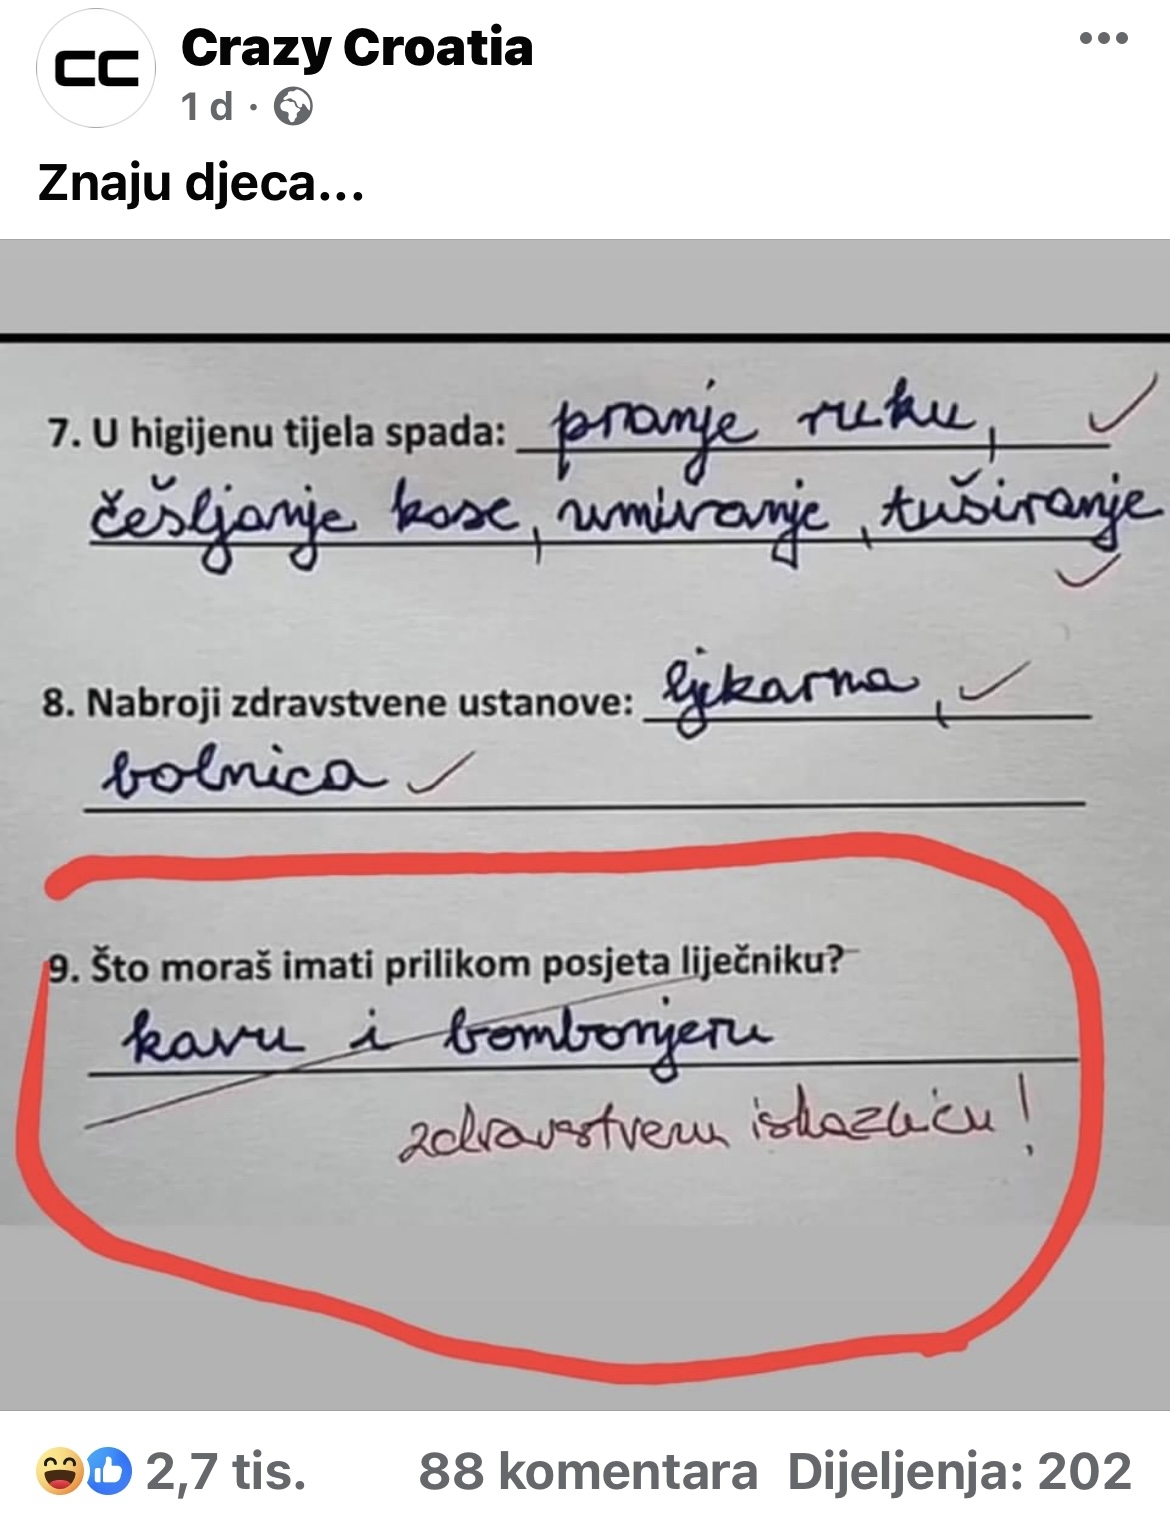 CC
Crazy Croatia
1 d ·
Znaju djeca...
7. U higijenu tijela spada: pranje ruku,
češljanje kose, umivanje, tuširanje
8. Nabroji zdravstvene ustanove: ljekarna,
bolnica
9. Što moraš imati prilikom posjeta liječniku?
kavu i bombonjeru
zdravstvenu iskaznicu!
2,7 tis. 88 komentara Dijeljenja: 202